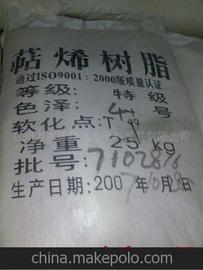 萜烯树脂
通过ISO9001：2000版质量认证
等级：特级
色泽：4# 号
软化点：T 99
净重 25 kg
批号：7102876
生产日期：2007年10月28日
china.makepolo.com